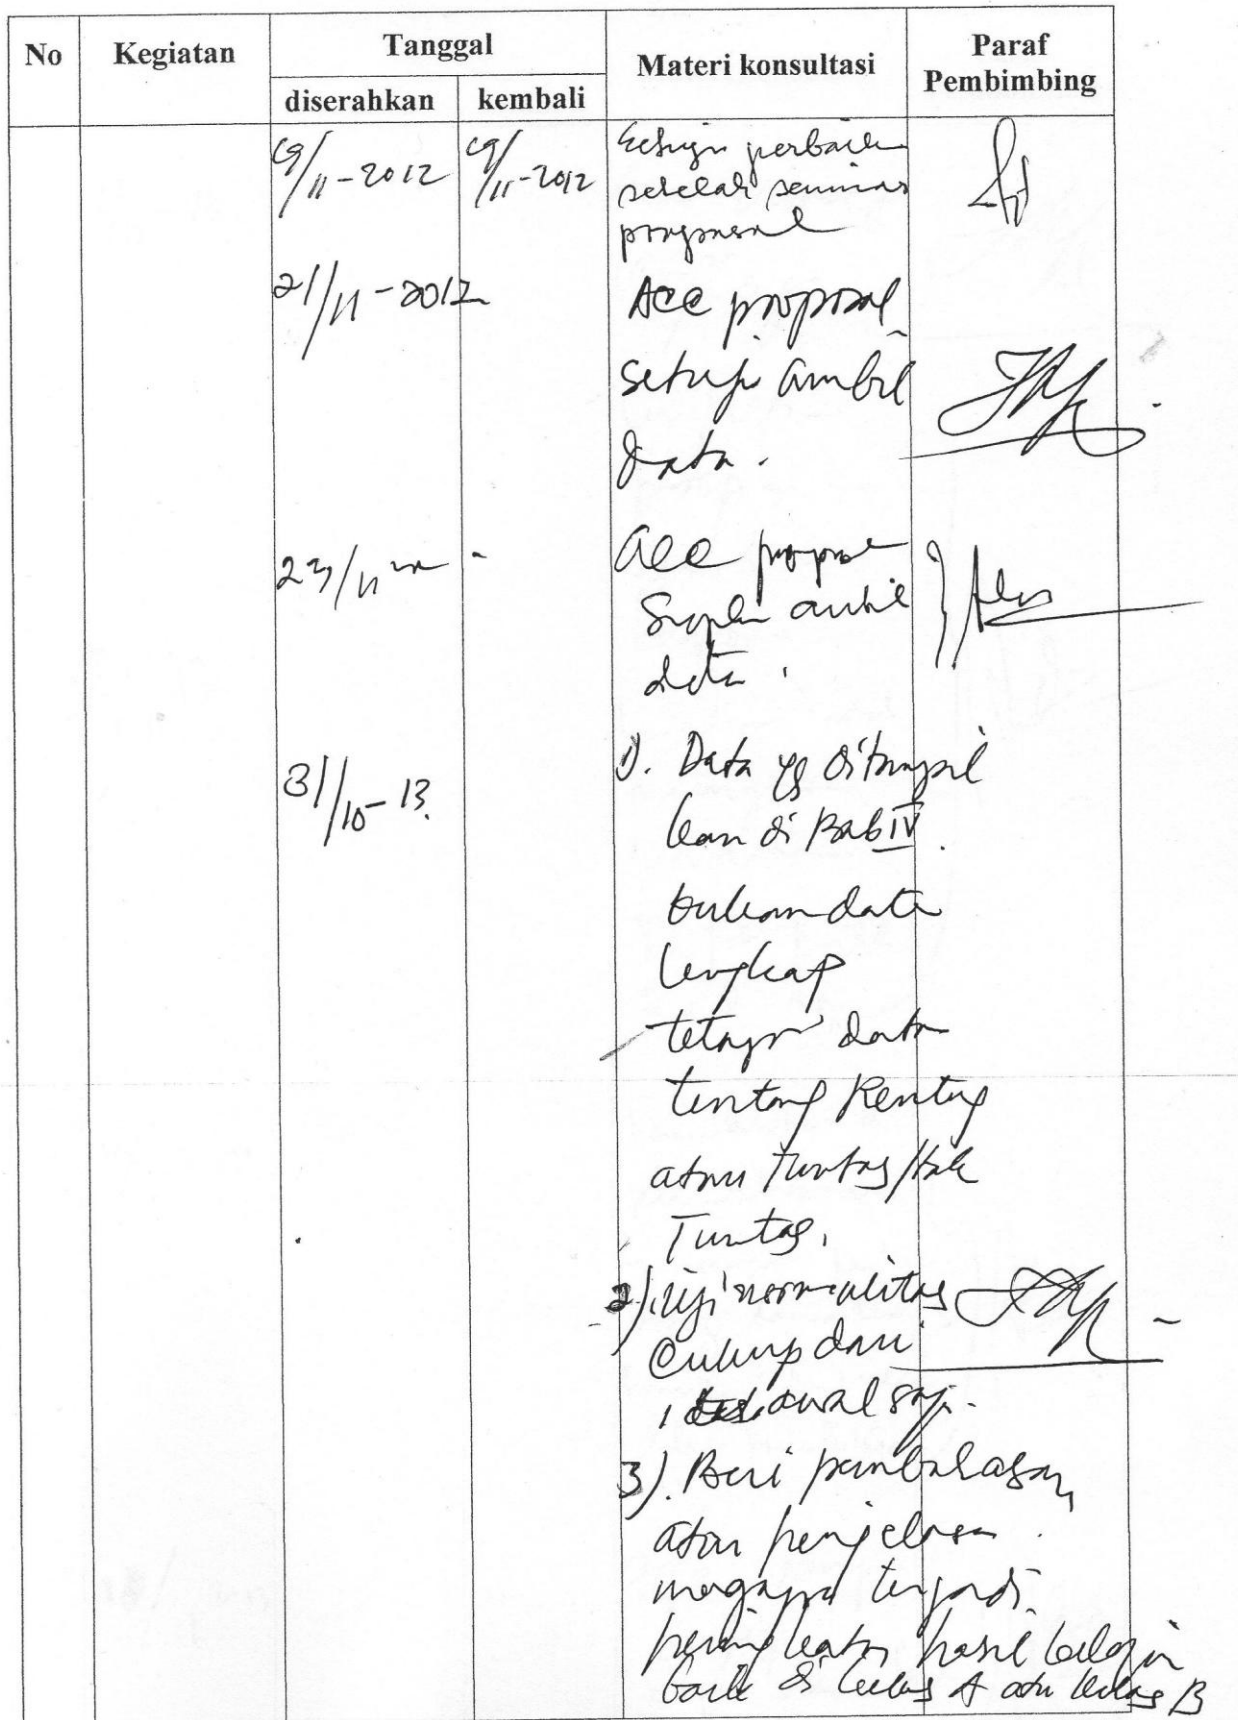 No Kegiatan Tanggal Materi konsultasi Paraf Pembimbing
diserahkan kembali
19/11-2012 19/11-2012 perbaikan
setelah seminar
proposal
21/11-2012 Acc proposal
setuju ambil
data.
23/11 - acc proposal
ambil
data.
31/10-13. 1). Data yg ditampil
kan di Bab IV.
bukan data
lengkap
tetapi data
tentang Rentang
atau Tuntas/tak
Tuntas.
2). Uji normalitas
Cukup dari
awal saja.
3). Beri pembahasan
atau penjelasan
mengapa terjadi
peningkatan hasil belajar
baik di kelas A atau kelas B